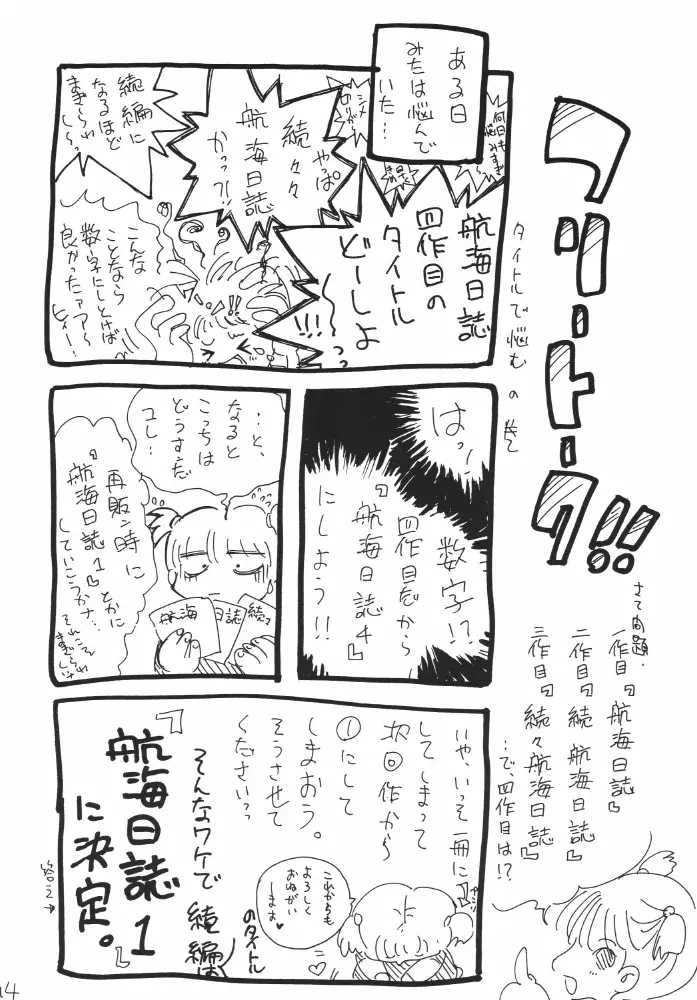 フリートーク!!
タイトルで悩む の巻
さて問題.
一作目『航海日誌』
二作目『続 航海日誌』
三作目『続々航海日誌』
…で、四作目は!?
ある日
みたは悩んで
いた…
何日も
悩みすぎ
シメ
航海日誌
四作目の
タイトル
どーしよ
〜〜っっ
!!!
やっぱ
続々々
航海日誌
かっ?!!
続編に
なるほど
まぎらわ
しい〜
こんな
ことなら
数字にしとけば
良かったァァ〜
ヒィー!
はっ!
数字!?
四作目だから
『航海日誌4』
にしよう!!
…と、
なると
こっちは
どうすっだ
コレ…
航海
日誌
続々
再販の時に
『航海日誌1』とかに
していこうかナ…
それこそ
まぎらわしいナ
いや、いっそ一冊に
してしまって
次回作から
①にして
しまおう。
そうさせて
くださいっっ
これからも
よろしく
おねがい
しまーす♥
そんなワケで 続編は
のタイトル
『航海日誌1』
に決定。
答え→
14